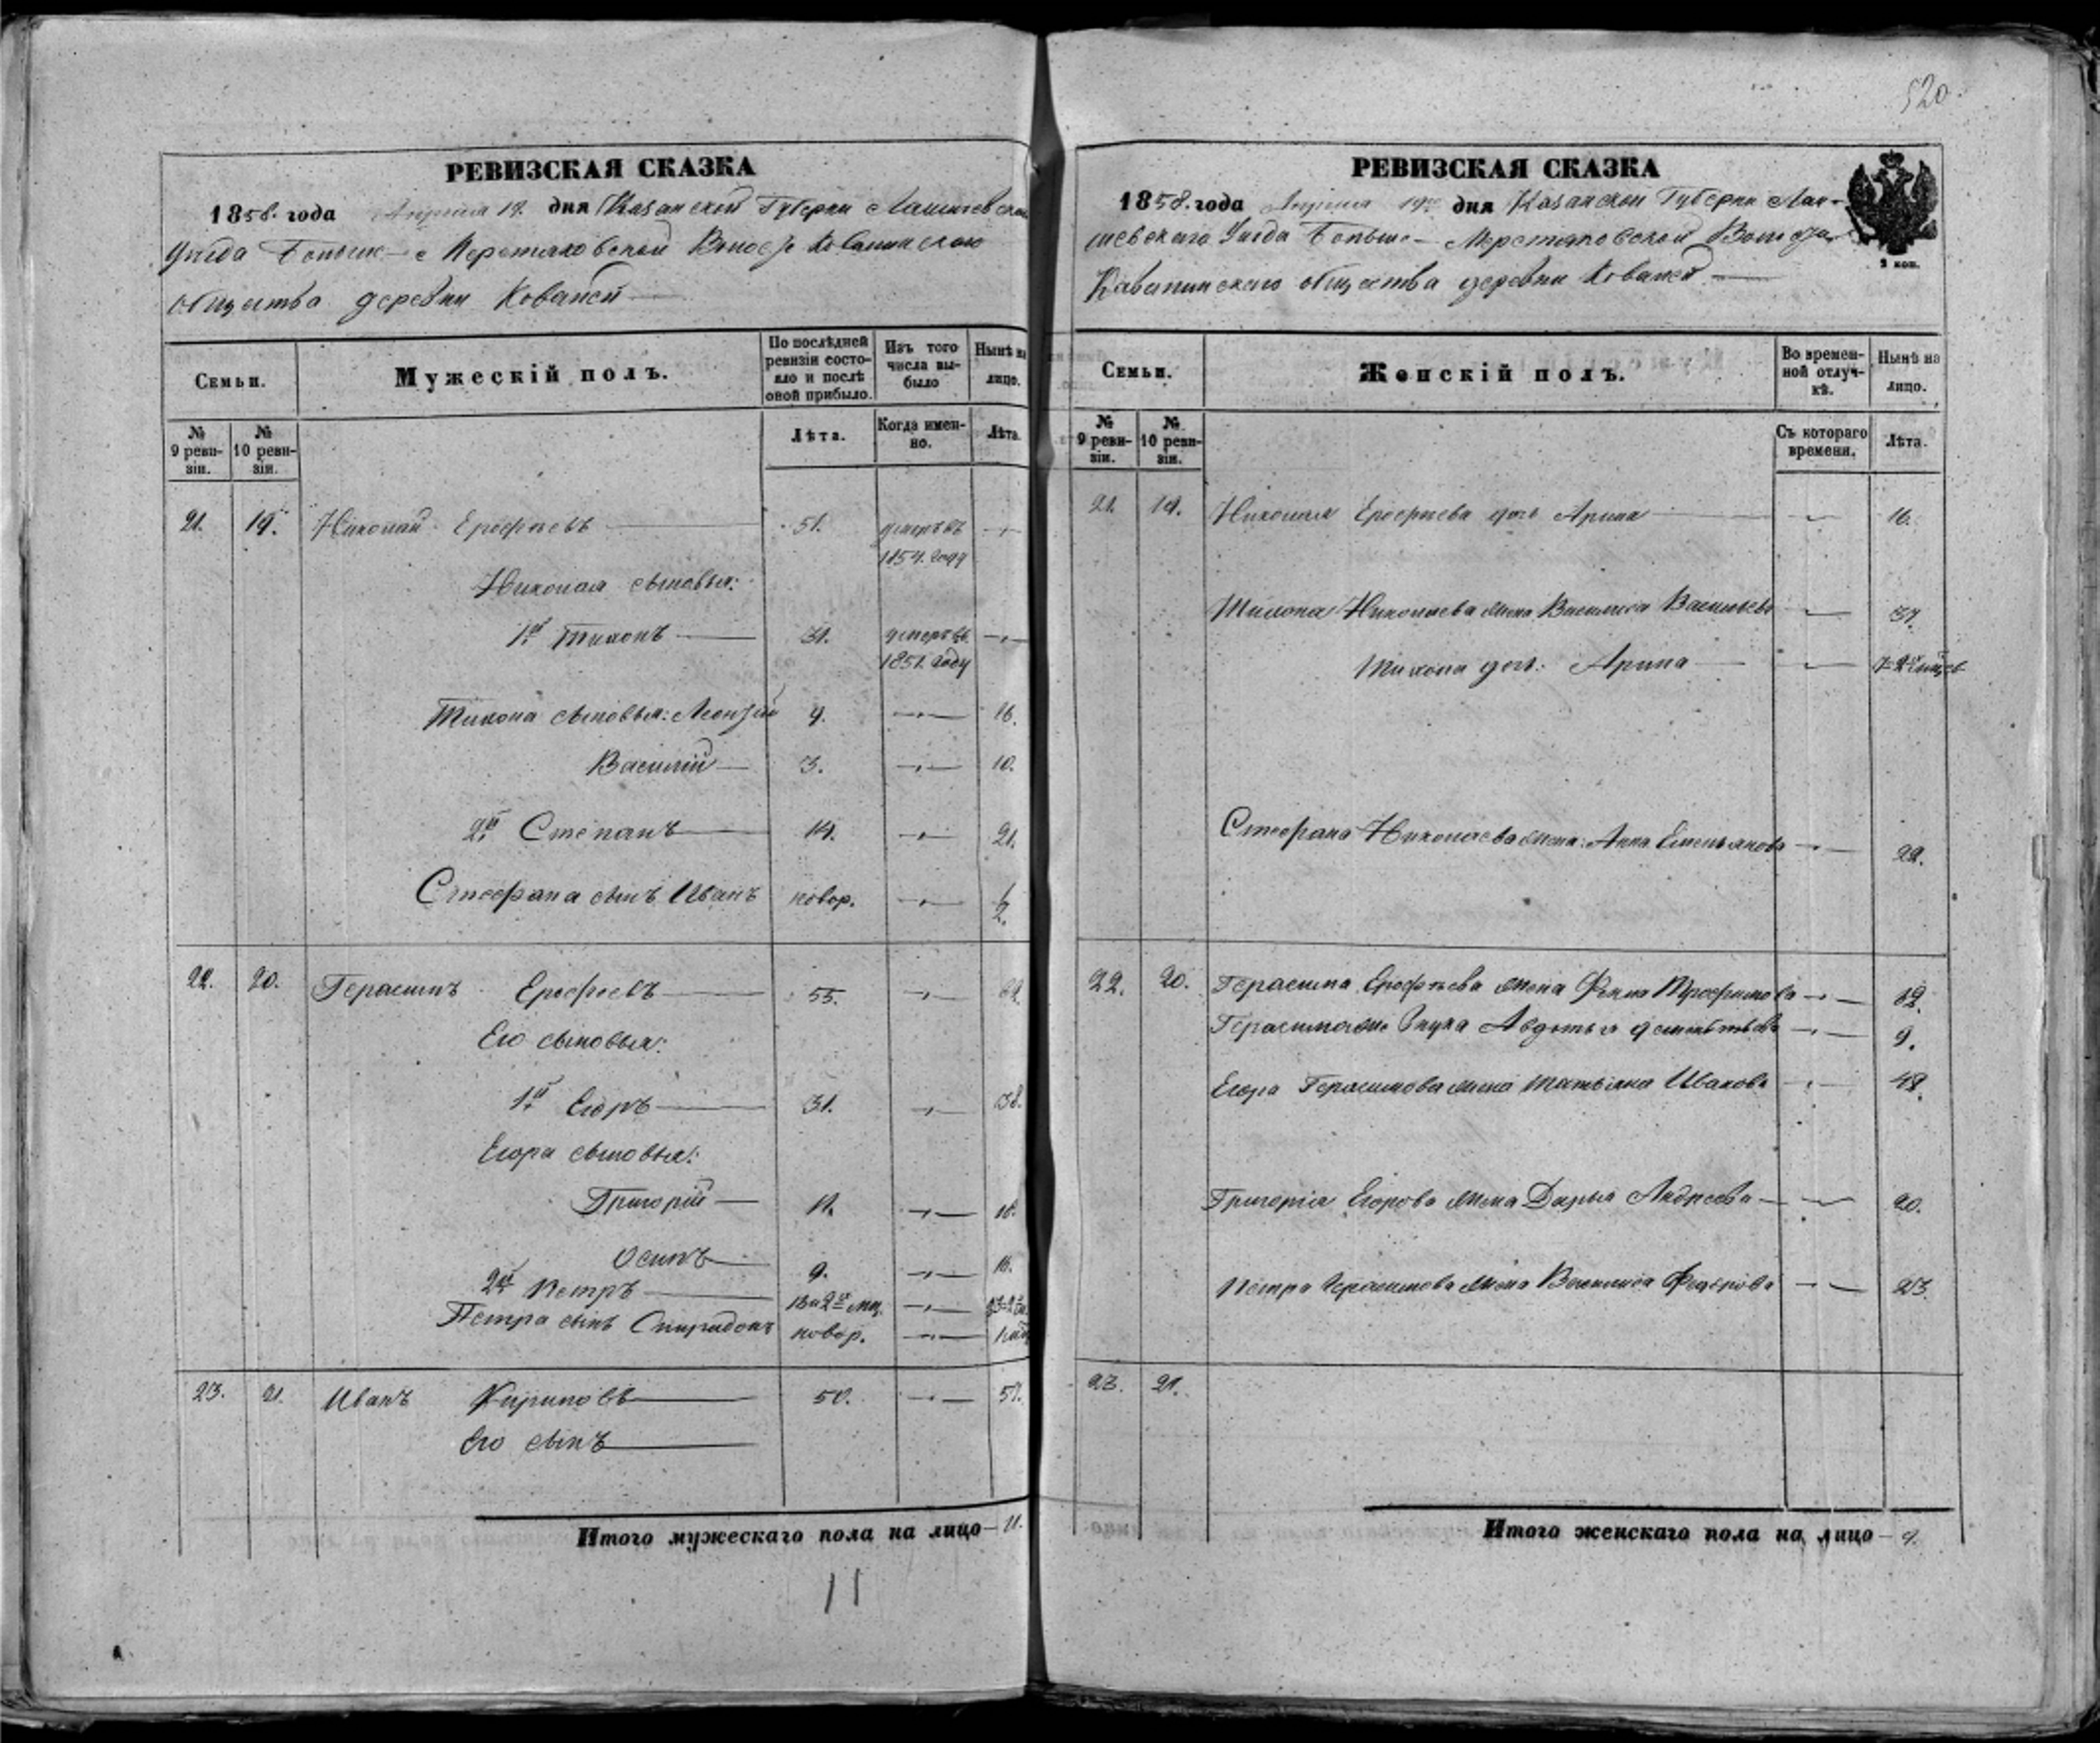 520.
РЕВИЗСКАЯ СКАЗКА
1858. года Апреля 19. дня Казанской Губерни Лаишевскаго
Уезда Больше-
общества деревни Ковалей
Семьи.
Мужескій полъ.
По послѣдней ревизіи состояло и послѣ оной прибыло.
Изъ того числа выбыло
Нынѣ на лицо.
№ 9 ревизіи.
№ 10 ревизіи.
Лѣта.
Когда именно.
Лѣта.
21. 19. Николай Ерофѣевъ 51. умеръ въ
1854. году
Николая сыновья:
1й Тихонъ 31. умеръ въ
1851. году
Тихона сыновья: 9. 16.
Василій 3. 10.
2й Степанъ 14. 21.
Стефана сынъ Иванъ новор.
22. 20. Герасимъ Ерофеевъ 55. 62.
Его сыновья:
1й Егоръ 31. 38.
Егора сыновья:
Григорій 11. 18.
Осипъ 9. 16.
2й Петръ
Петра сынъ Спиридонъ новор.
23. 21. Иванъ Кириловъ 50. 57.
Его сынъ
Итого мужескаго пола на лицо 11.
11
РЕВИЗСКАЯ СКАЗКА
1858. года Апреля 19го дня Казанской Губерни Лаи-
шевскаго Уезда Больше-
общества деревни Ковалей
2 коп.
Семьи.
Женскій полъ.
Во временной отлучкѣ.
Нынѣ на лицо.
№ 9 ревизіи.
№ 10 ревизіи.
Съ котораго времени.
Лѣта.
21. 19. Николая Ерофѣева доч Арина 16.
Тихона Николаева жена Василиса Васильева 37.
Тихона доч: Арина
Стефана Николаева жена: Анна Емельянова 22.
22. 20. Герасима Ерофѣева жена Трофимова
Авдотья 9.
Егора Герасимова жена Татьяна Иванова
Григорія Егорова жена Дарья Андреева 20.
Петра Герасимова жена Василиса Федорова 23.
23. 21.
Итого женскаго пола на лицо 9.